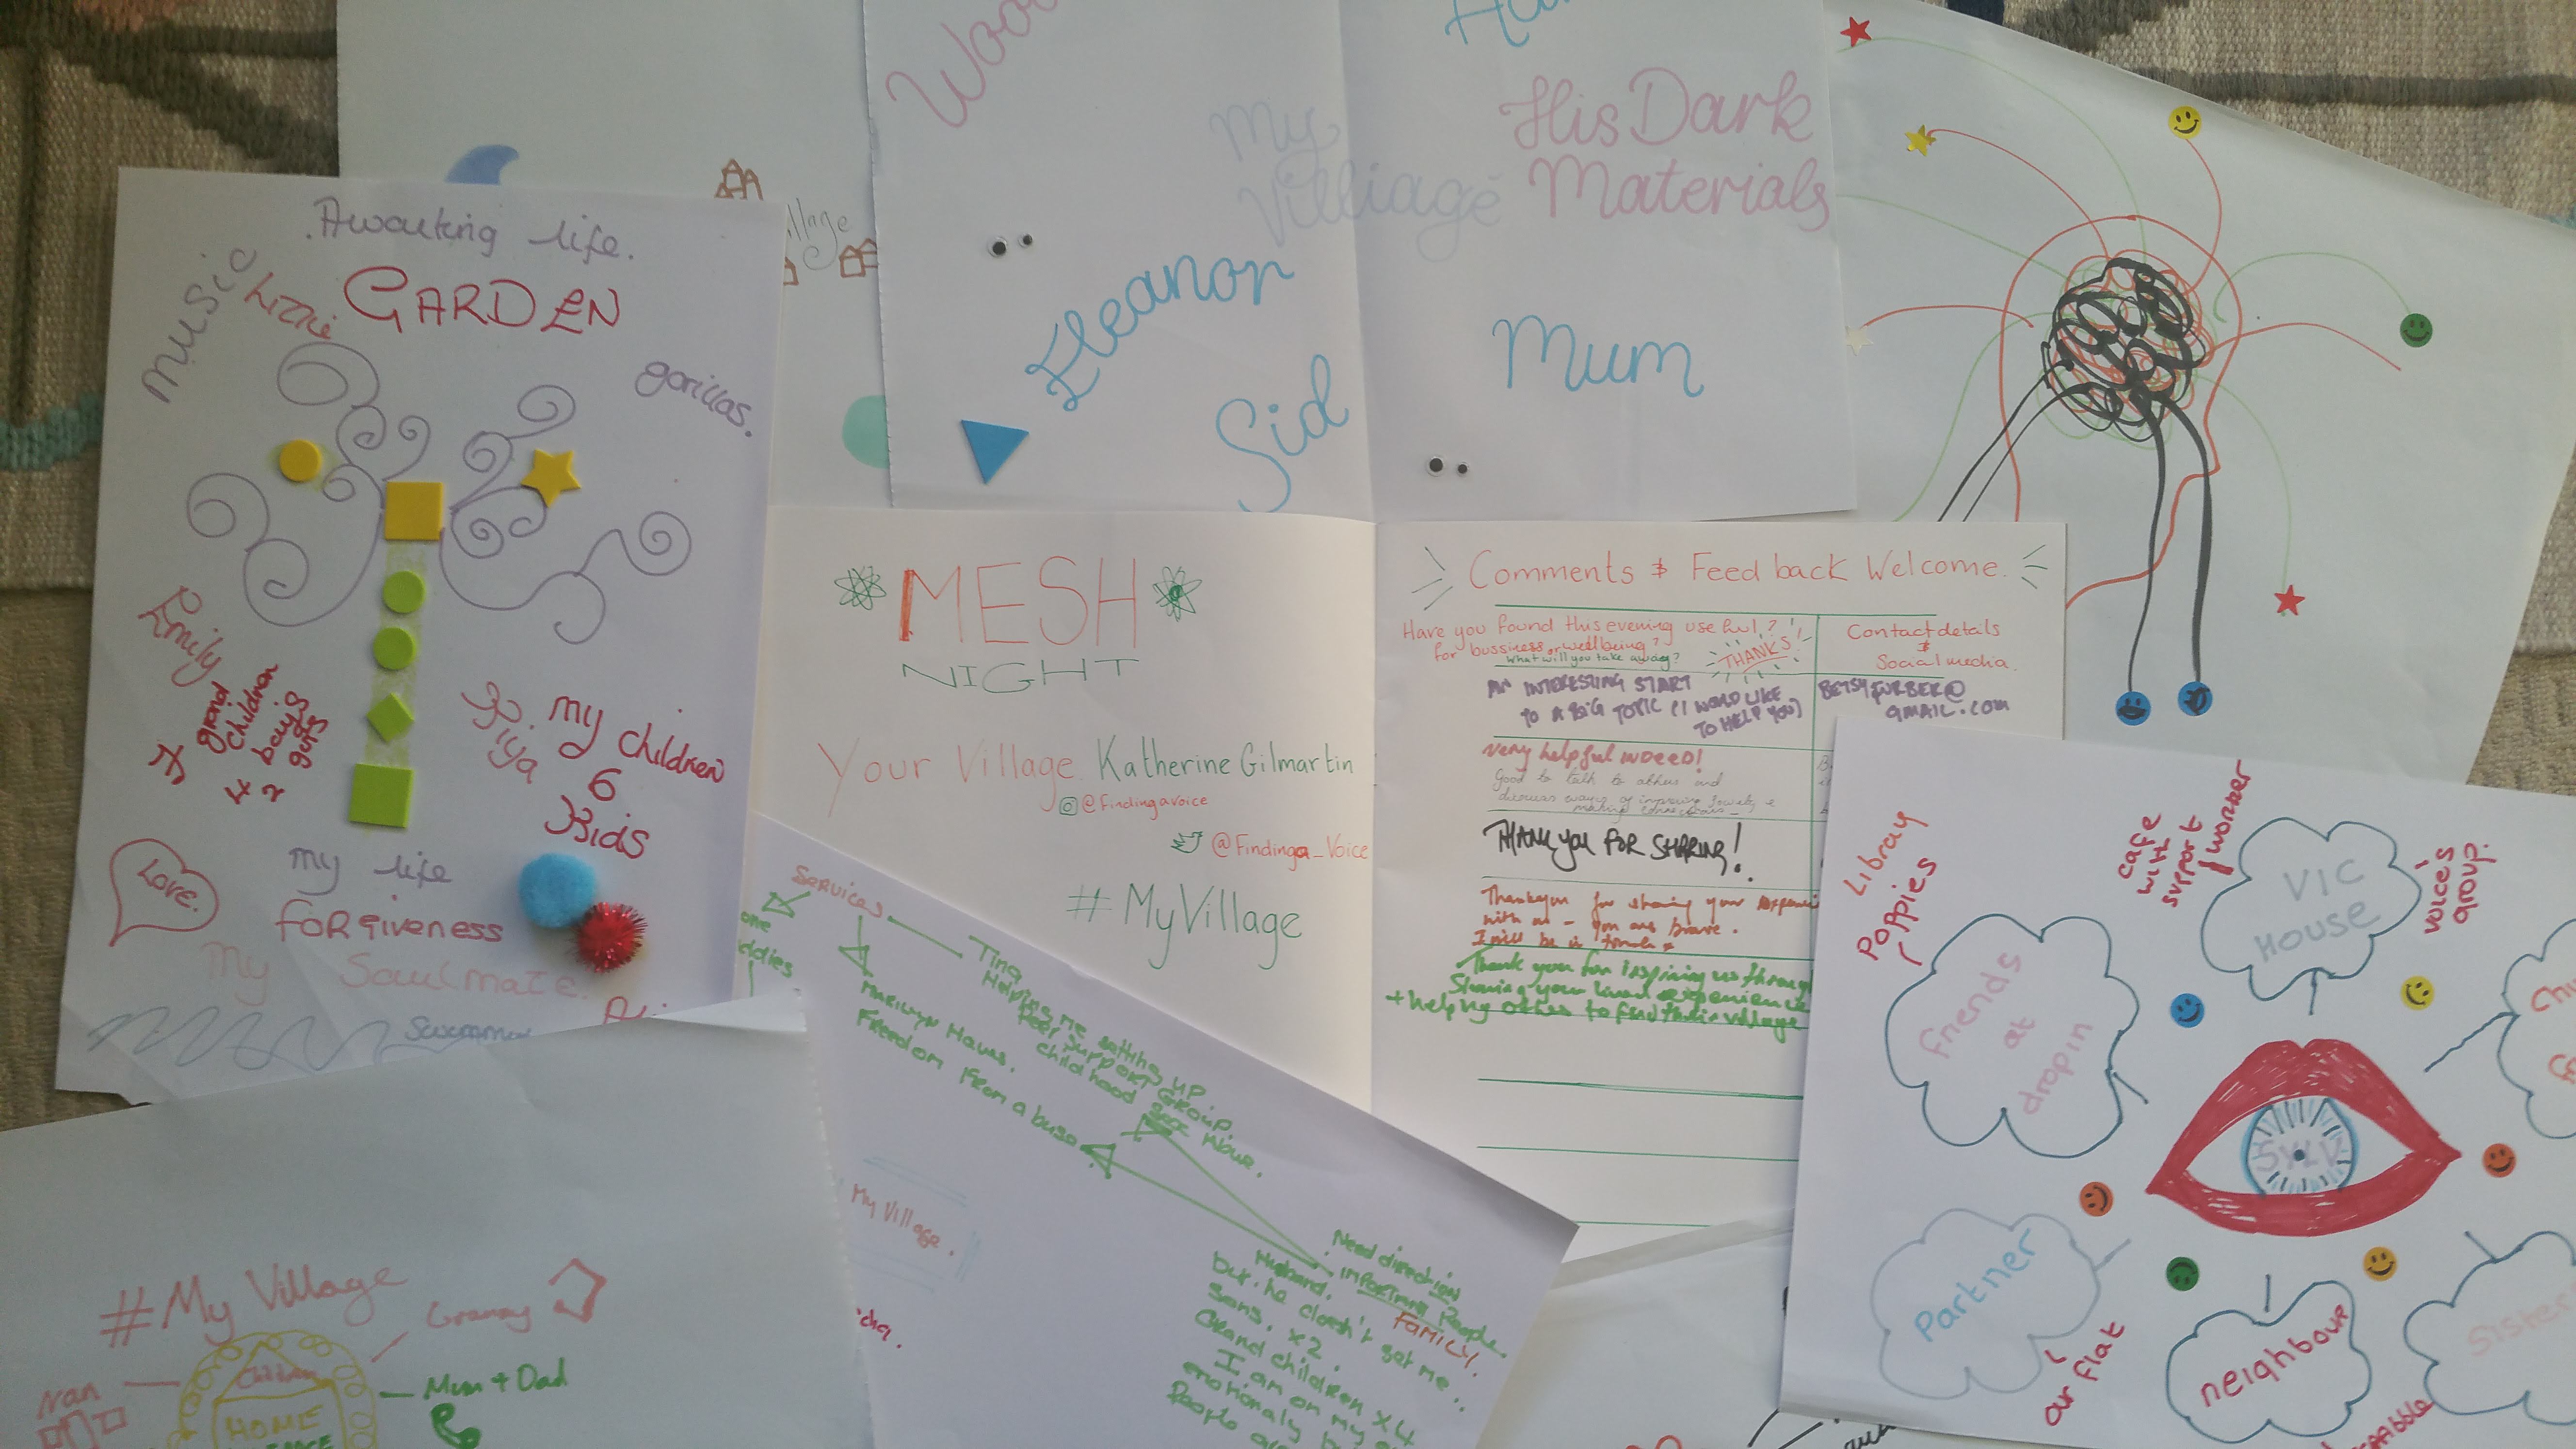 Awaiting life.
music
GARDEN
gorillas.
Emily
7 grand
children
4 boys
2 girls
my children
6
Kids
Love.
my life
forgiveness
my Soulmate.
My
Villiage
His Dark
Materials
Eleanor
Sid
Mum
MESH
NIGHT
Your Village Katherine Gilmartin
@findingavoice
@Findinga_Voice
#MyVillage
Comments & Feed back Welcome.
Have you found this evening useful?
for bussiness or wellbeing?
What will you take away?
THANKS
Contact details
&
Social media.
AN INTERESTING START
TO A BIG TOPIC (I WOULD LIKE
TO HELP YOU)
BETSYFURBER@
GMAIL.COM
Very helpful indeed!
Good to talk to others and
discuss ways of improving
making connections
THANK YOU FOR SHARING!
Thankyou for sharing your
with us - you are brave.
I will be in touch x
Thank you for inspiring us through
Sharing your lived experience
+ helping others to find their village
Services
Tina
Helping me setting up
Peer support Group.
childhood
Marilyn Hawes.
Freedom From abuse
My Village.
Need direction
important People
FAMILY.
Husband.
but he doesn't get me..
sons. x2.
Grand children x4
I am on my
emotionaly
People
#My Village
Granny
Nan
Children
HOME
Mum + Dad
Libray
Poppies
cafe
with
support
worker
VIC
HOUSE
voices
group.
friends
at
dropin
Partner
our flat
neighbour
Sister